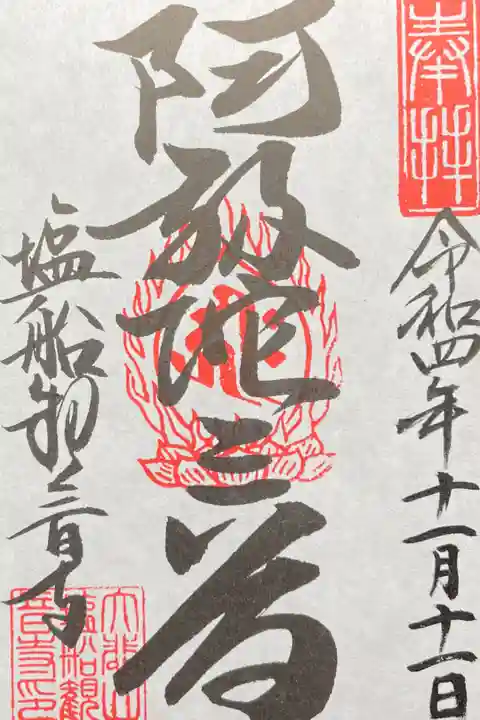 奉拝
令和四年十一月十一日
阿弥陀三尊
塩船観音寺
大悲山
塩船観
音寺印